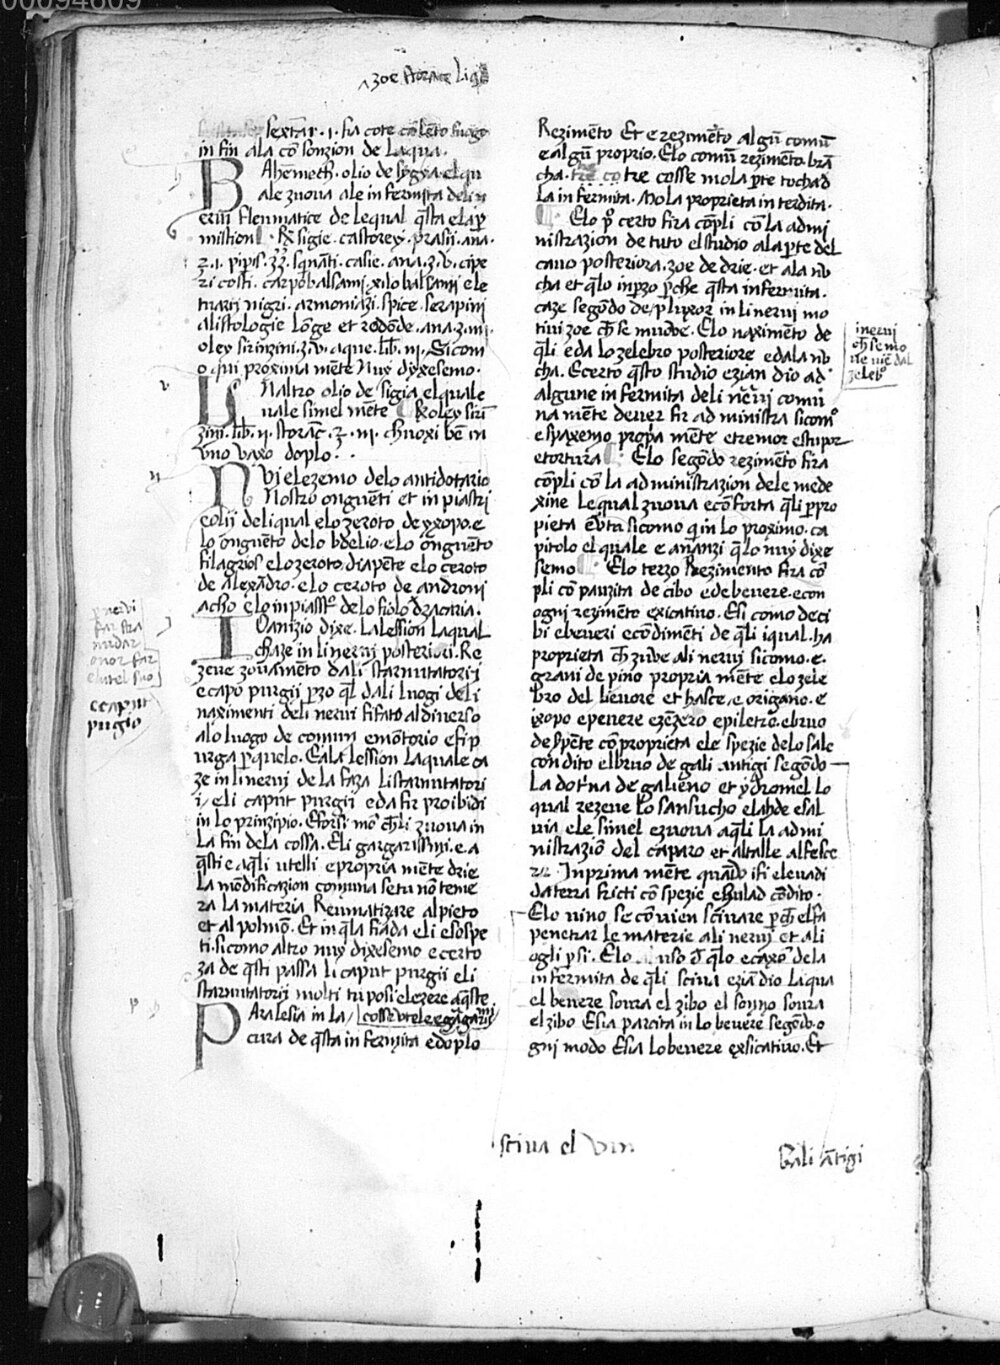 00094609
zoe storace liq̄d
sextar̄ . i . fia cote cō lēto fuogo
in fin ala cōsonzion de laqua .
BAhemeth . olio de sygya elqu
ale zuoua ale infermita deli n
erui flenmatice de lequal q̄sta elap̄
mistion . Rx sigie . castorey . prasii . ana .
ʒ . i . pip̄is . ʒʒ . squināti . casie . ana . ʒ . v . cipe
ri costi . carpobalsami xilobalsami ele
tuarij nigri . armoniazi . spice . serapini
alistologie lōge et rodōde . ana . ʒ . iii .
oley sirinzini . ʒ . v . aque . lib̄ . iii . Sicom
o qui proxima mēte nuy dyxesemo .
UNaltro olio de sigia elquale
uale simel mēte Rx oley sirī
zini . lib̄ . ii . storac̄ . ʒ . iii . chuoxi bē in
vno vaxo doplo .
NVi elezemo delo antidotario
nostro onguēti et inpiastri
eolij deliqual elo zeroto de yxopo . e
lo onguēto delo bdelio . elo onguēto
filagrios elo zeroto diapēte elo ceroto
de alexādro . elo ceroto de androni
acho elo inpiastro delo fiolo d zacaria .
IOanizio dixe . La lession laqual
chaze in li nerui posteriori . Re
zeue zouamēto dali starnutatorij
ecapo purgij p̄zo q̄l dali luogi deli
naximenti deli nerui fi fato al diuerso
alo luogo de comun emōtorio efi p
urga p̄ quelo . Eala lession laquale ca
ze in li nerui de la faza li starnutatori
i / e li caput purgii eda fir proibidi
in lo prinzipio . Eforsi mo ch̄ li zuoua in
la fin dela cossa . Eli gargarissmi . e a
q̄sti e aq̄li utelli e propria mēte drie
la mōdificazion comuna setu nō teme
ra la materia Reumatizare al pieto
et al polmō . Et in q̄la fiada eli e sospe
ti . sicomo altro nuy dixesemo e certo
za de q̄sti passa li caput purgii e li
starnutatorij molti tu posi elezere aq̄ste
PAralesia in la / cosse utele e gargarismi
cura de q̄sta infermita e doplo
p nerui
far stra
nudar
o nor far
e lutel suo
e caput
purgio
Rezimēto Et e rezimēto algū comū
e algū proprio . Elo comū rezimēto . brā
cha . tre cosse mola p̄te tochad
la infermita . Mola proprieta interdita .
Elo p̄ certo fira cōpli cō la admi
nistrazion de tuto el studio ala p̄te del
cauo posteriora . zoe de drie . et ala nu
cha et q̄lo inp̄zo p̄che q̄sta infermita .
caze segōdo de pluxor in li nerui mo
tiui zoe ch̄ se muoue . Elo naximēto de
q̄li e da lo zelebro posteriore e dala nu
cha . E certo q̄sto studio ezian dio ad
algune infermita deli nerui comu
na mēte deuer fir administra sicomo
e spaxemo propria mēte e tremor e stupor
e tortura . Elo segōdo rezimēto fira
cōpli cō la administrazion dele mede
xine lequal zuoua e cōforta q̄li p̄ pro
pieta e v̄tu sicomo q̄ in lo proximo . ca
pitolo el quale e ananzi q̄lo nuy dixe
semo . Elo terzo Rezimento fira cō
pli cō pauzita de cibo e de beuere . e con
ogni rezimēto exicatiuo . Esi como de ci
bi e beueri e cōdimēti de q̄li i qual . ha
proprieta ch̄ zuue ali nerui sicomo . e .
grani de pino propria mēte elo zele
bro del lieuore et hasce , e origano . e
ixopo e peuere e zēzero e piletro . e bruo
de sp̄ente cō proprieta ele spezie delo sale
condito el bruo de gali antigi segōdo
la dotrina de galieno et ydromel lo
qual rezeue lo sansucho e lande e sal
uia ele simel e zuoua aq̄li la admi
nistraziō del caparo et altalle alfesce
ra . Inprima mēte quādo ifi eleuadi
da terra fricti cō spezie e hulad cōdito .
Elo uino se cōuien sciuare p̄ch̄ el fa
penetrar le materie ali nerui et ali
ogli p̄si . Elo uso d̄ q̄lo e caxō dela
infermita de q̄li . sciua eziā dio laqua
el beuere soura el zibo el sonno soura
el zibo . E sia parcita in lo beuere segōdo o
gni modo E sia lo beuere exsicatiuo . Et
i nerui
ch̄ se mo
ue uiē dal
zelebro
sciua el vin
Gali ātigi